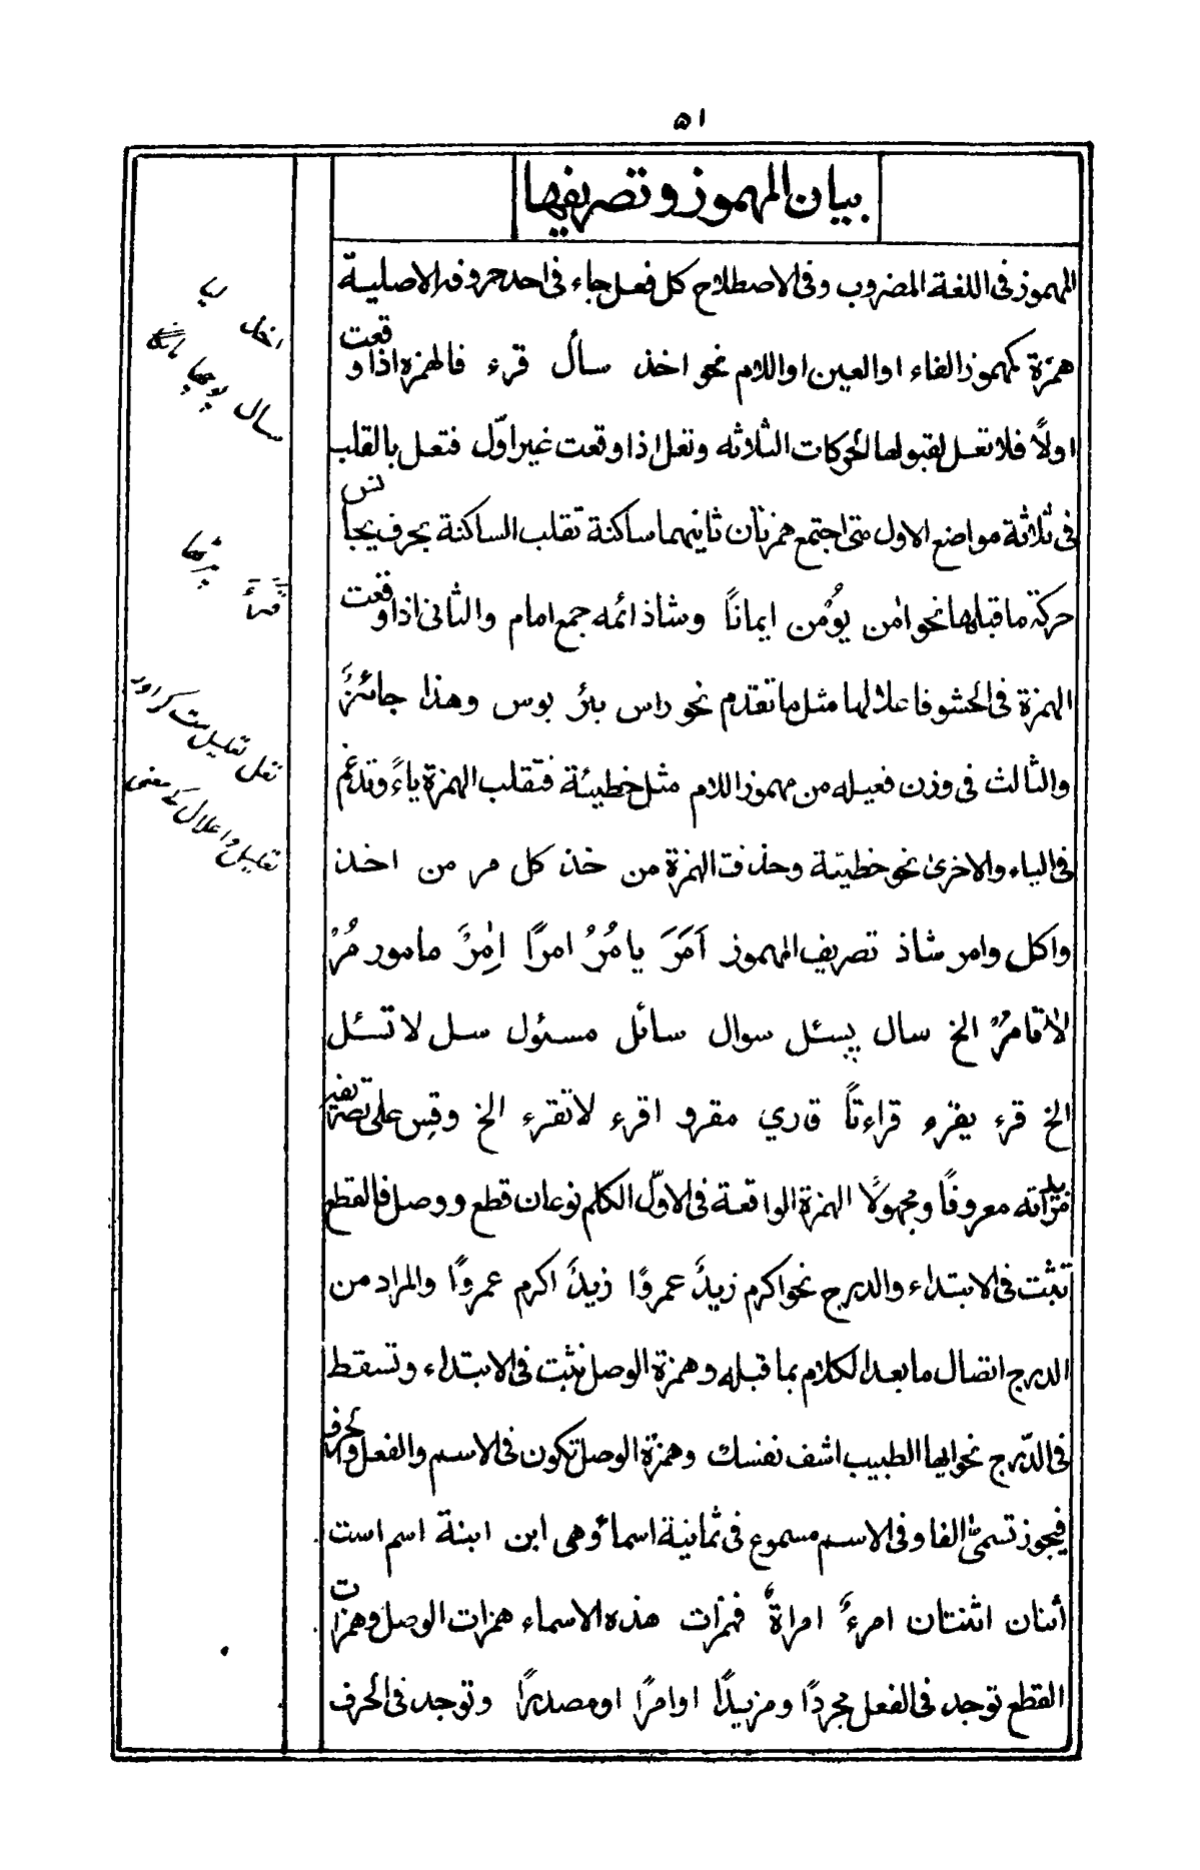 ۵۱
بيان المهموز وتصريفها
المهموز فى اللغة المضروب وفى الاصطلاح كل فعل جاء فى احد حروفه الاصلية
همزة كمهموز الفاء او العين او اللام نحو اخذ سأل قرء فالهمزه اذا وقعت
اولًا فلا تعل لقبولها الحركات الثلاثه وتعل اذا وقعت غير اوّل فتعل بالقلب
فى ثلاثة مواضع الاول متى اجتمع همزتان ثانيهما ساكنة تقلب الساكنة بحرف يجانس
حركة ما قبلها نحو اٰمن يُؤمن ايمانًا وشاذ ائمه جمع امام والثانى اذا وقعت
الهمزة فى الحشو فاعلالها مثل ما تقدم نحو راس بئر بوس وهذا جائزٌ
والثالث فى وزن فعيله من مهموز اللام مثل خطيئة فتقلب الهمزة ياءً وتدغم
فى الياء والاخرىٰ نحو خطيّة وحذفت الهمزة من خذ كل مر من اخذ
واكل وامر شاذ تصريف المهموز اَمَرَ يامُرُ امرًا اٰمِرٌ مامور مُرْ
لاتامُرْ الخ سال يسئل سوال سائل مسئول سل لا تسئل
الخ قرء يقرء قراءتًا قاري مقرو اقرء لاتقرء الخ وقِس على تصريف
مزيداته معروفًا ومجهولًا الهمزة الواقعة فى الاوّل الكلم نوعان قطع ووصل فالقطع
تثبت فى الابتداء والدرج نحو اكرم زيدٌ عمروًا زيدٌ اكرم عمروًا والمراد من
الدرج اتصال ما بعد الكلام بما قبله وهمزة الوصل تثبت فى الابتداء وتسقط
فى الدّرج نحو ايها الطبيب اشف نفسك وهمزة الوصل تكون فى الاسم والفعل والحرف
فيجوز تسمىٰ الفا وفى الاسم مسموع فى ثمانية اسماءٍ وهى ابن ابنة اسم است
أثنان اثنتان امرءٌ امراةٌ فهمزات هذه الاسماء همزات الوصل وهمزات
القطع توجد فى الفعل مجردًا ومزيدًا او امرًا او مصدرًا وتوجد فى الحرف
اخذ لے
سال پوچھا مانگا
قَرَءَ پڑھا
تعل تعلیل ست کر اور
تعلیل و اعلال کے معنی